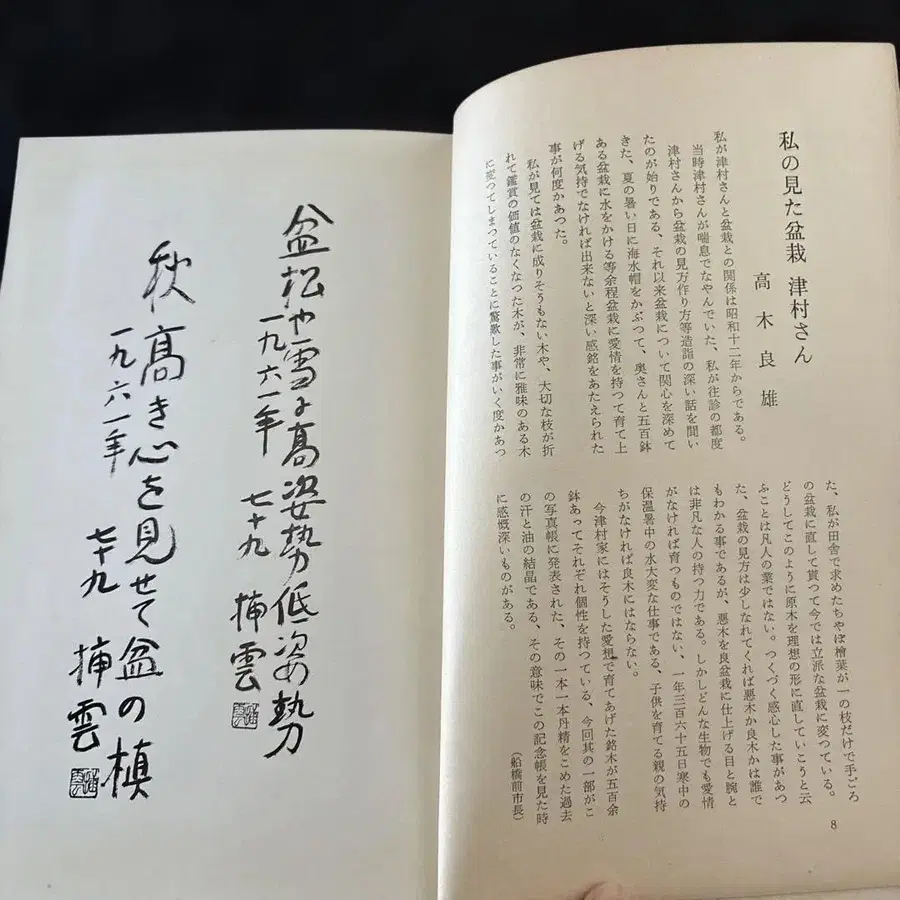 私の見た盆栽 津村さん
高木良雄
私が津村さんと盆栽との関係は昭和十二年からである。
当時津村さんが喘息でなやんでいた、私が往診の都度
津村さんから盆栽の見方作り方等造詣の深い話を聞い
たのが始りである、それ以来盆栽について関心を深めて
きた、夏の暑い日に海水帽をかぶつて、奥さんと五百鉢
ある盆栽に水をかける等余程盆栽に愛情を持つて育て上
げる気持でなければ出来ないと深い感銘をあたえられた
事が何度かあつた。
私が見ては盆栽に成りそうもない木や、大切な枝が折
れて鑑賞の価値のなくなつた木が、非常に雅味のある木
に変つてしまつていることに驚歎した事がいく度かあつ
た、私が田舎で求めたちやぼ檜葉が一の枝だけで手ごろ
の盆栽に直して貰つて今では立派な盆栽に変つている。
どうしてこのように原木を理想の形に直していこうと云
ふことは凡人の業ではない。つくづく感心した事があつ
た、盆栽の見方は少しなれてくれば悪木か良木かは誰で
もわかる事であるが、悪木を良盆栽に仕上げる目と腕と
は非凡な人の持つ力である。しかしどんな生物でも愛情
がなければ育つものではない、一年三百六十五日寒中の
保温暑中の水大変な仕事である、子供を育てる親の気持
ちがなければ良木にはならない。
今津村家にはそうした愛想で育てあげた銘木が五百余
鉢あつてそれぞれ個性を持つている、今回其の一部がこ
の写真帳に発表された、その一本一本丹精をこめた過去
の汗と油の結晶である、その意味でこの記念帳を見た時
に感慨深いものがある。
(船橋前市長)
8
盆松や雪に高姿勢低姿勢
一九六一年 七十九 挿雲
秋高き心を見せて盆の槙
一九六一年 七十九 挿雲